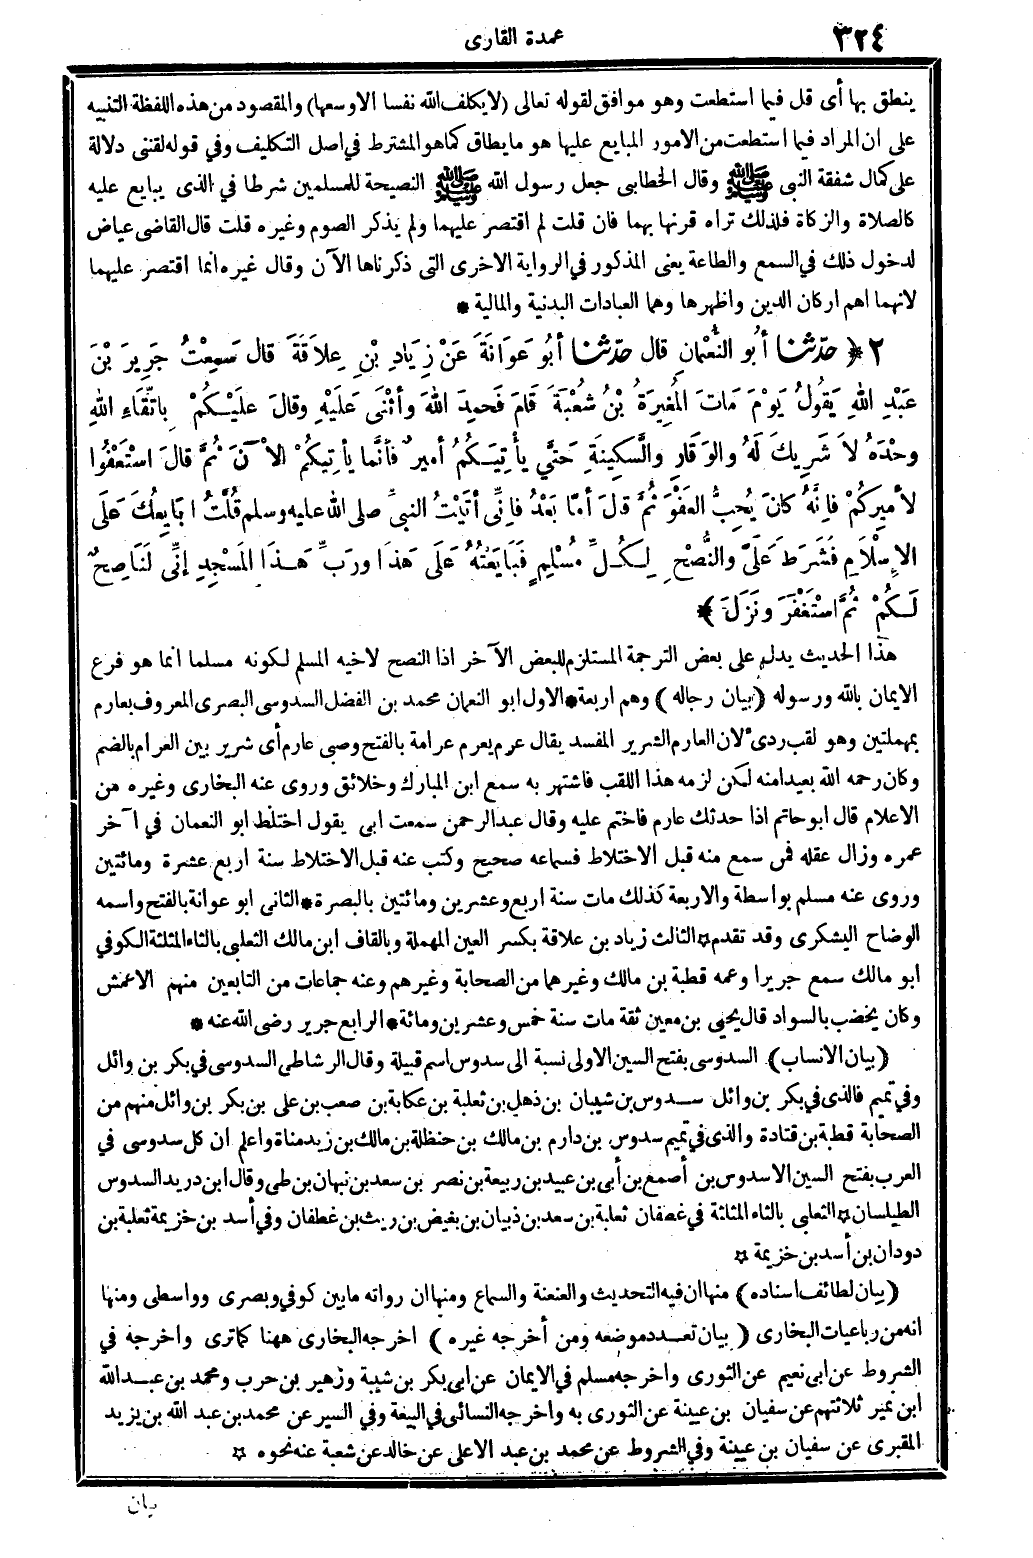 ٣٢٤
عمدة القارى
ينطق بها أى قل فيما استطعت وهو موافق لقوله تعالى (لا يكلف الله نفسا الا وسعها) والمقصود من هذه اللفظة التنبيه
على ان المراد فيما استطعت من الامور المبايع عليها هو ما يطاق كما هو المشترط في اصل التكليف وفي قوله لقننى دلالة
على كمال شفقة النبى ﷺ وقال الخطابى جعل رسول الله ﷺ النصيحة للمسلمين شرطا في الذى يبايع عليه
كالصلاة والزكاة فلذلك تراه قرنها بهما فان قلت لم اقتصر عليهما ولم يذكر الصوم وغيره قلت قال القاضى عياض
لدخول ذلك في السمع والطاعة يعنى المذكور في الرواية الاخرى التى ذكرناها الآن وقال غيره انما اقتصر عليهما
لانهما اهم اركان الدين واظهرها وهما العبادات البدنية والمالية *
٢ ﴿ حَدَّثَنَا أَبُو النُّعْمَانِ قال حَدَّثَنَا أَبُو عَوَانَةَ عَنْ زِيَادِ بْنِ عِلَاقَةَ قال سَمِعْتُ جَرِيرَ بْنَ
عَبْدِ اللهِ يَقُولُ يَوْمَ مَاتَ المُغِيرَةُ بْنُ شُعْبَةَ قَامَ فَحَمِدَ اللهَ وأَثْنَى عَلَيْهِ وقالَ عَلَيْكُمْ بِاتِّقَاءِ اللهِ
وحْدَهُ لاَ شَرِيكَ لَهُ والوَقَارِ والسَّكِينَةِ حَتَّى يَأْتِيَكُمْ أمِيرٌ فَأَنَّما يأتِيكُمْ الآنَ ثُمَّ قالَ اسْتَعْفُوا
لأمِيرِكُمْ فَإِنَّهُ كانَ يُحِبُّ العَفْوَ ثُمَّ قالَ أمَّا بَعْدُ فَإِنِّى أتَيْتُ النبىَّ صلى الله عليه وسلم قُلْتُ ابَايِعُكَ عَلَى
الاِسْلاَمِ فَشَرَطَ عَلَىَّ والنُّصْحِ لِكُلِّ مُسْلِمٍ فَبَايَعْتُهُ عَلَى هَذَا ورَبِّ هَذَا المَسْجِدِ إنِّى لَنَاصِحٌ
لَكُمْ ثُمَّ اسْتَغْفَرَ ونَزَلَ ﴾*
هذا الحديث يدل على بعض الترجمة المستلزم للبعض الآخر اذا النصح لاخيه المسلم لكونه مسلما انما هو فرع
الايمان بالله ورسوله (بيان رجاله) وهم اربعة * الاول ابو النعمان محمد بن الفضل السدوسى البصرى المعروف بعارم
بمهملتين وهو لقب ردىء لان العارم الشرير المفسد يقال عرم يعرم عرامة بالفتح وصبى عارم أى شرير بين العرام بالضم
وكان رحمه الله بعيدا منه لكن لزمه هذا اللقب فاشتهر به سمع ابن المبارك وخلائق وروى عنه البخارى وغيره من
الاعلام قال ابو حاتم اذا حدثك عارم فاختم عليه وقال عبد الرحمن سمعت ابى يقول اختلط ابو النعمان في آخر
عمره وزال عقله فمن سمع منه قبل الاختلاط فسماعه صحيح وكتب عنه قبل الاختلاط سنة اربع عشرة ومائتين
وروى عنه مسلم بواسطة والاربعة كذلك مات سنة اربع وعشرين ومائتين بالبصرة * الثانى ابو عوانة بالفتح واسمه
الوضاح اليشكرى وقد تقدم * الثالث زياد بن علاقة بكسر العين المهملة وبالقاف ابن مالك الثعلبى بالثاء المثلثة الكوفي
ابو مالك سمع جريرا وعمه قطبة بن مالك وغيرهما من الصحابة وغيرهم وعنه جماعات من التابعين منهم الاعمش
وكان يخضب بالسواد قال يحيى بن معين ثقة مات سنة خمس وعشرين ومائة * الرابع جرير رضى الله عنه *
(بيان الانساب) السدوسى بفتح السين الاولى نسبة الى سدوس اسم قبيلة وقال الرشاطى السدوسى في بكر بن وائل
وفي تميم فالذى في بكر بن وائل سدوس بن شيبان بن ذهل بن ثعلبة بن عكابة بن صعب بن على بن بكر بن وائل منهم من
الصحابة قطبة بن قتادة والذى في تميم سدوس بن دارم بن مالك بن حنظلة بن مالك بن زيد مناة واعلم ان كل سدوسى في
العرب بفتح السين الا سدوس بن أصمع بن أبى بن عبيد بن ربيعة بن نصر بن سعد بن نبهان بن طى وقال ابن دريد السدوس
الطيلسان * الثعلبى بالثاء المثلثة في غطفان ثعلبة بن سعد بن ذبيان بن بغيض بن ريث بن غطفان وفي أسد بن خزيمة ثعلبة بن
دودان بن أسد بن خزيمة *
(بيان لطائف اسناده) منها ان فيه التحديث والعنعنة والسماع ومنها ان رواته ما بين كوفي وبصرى وواسطى ومنها
انه من رباعيات البخارى (بيان تعدد موضعه ومن أخرجه غيره) اخرجه البخارى ههنا كما ترى واخرجه في
الشروط عن ابى نعيم عن الثورى واخرجه مسلم في الايمان عن ابى بكر بن شيبة وزهير بن حرب ومحمد بن عبد الله
ابن نمير ثلاثتهم عن سفيان بن عيينة عن الثورى به واخرجه النسائى في البيعة وفي السير عن محمد بن عبد الله بن يزيد
المقبرى عن سفيان بن عيينة وفي الشروط عن محمد بن عبد الاعلى عن خالد عن شعبة عنه نحوه *
بيان